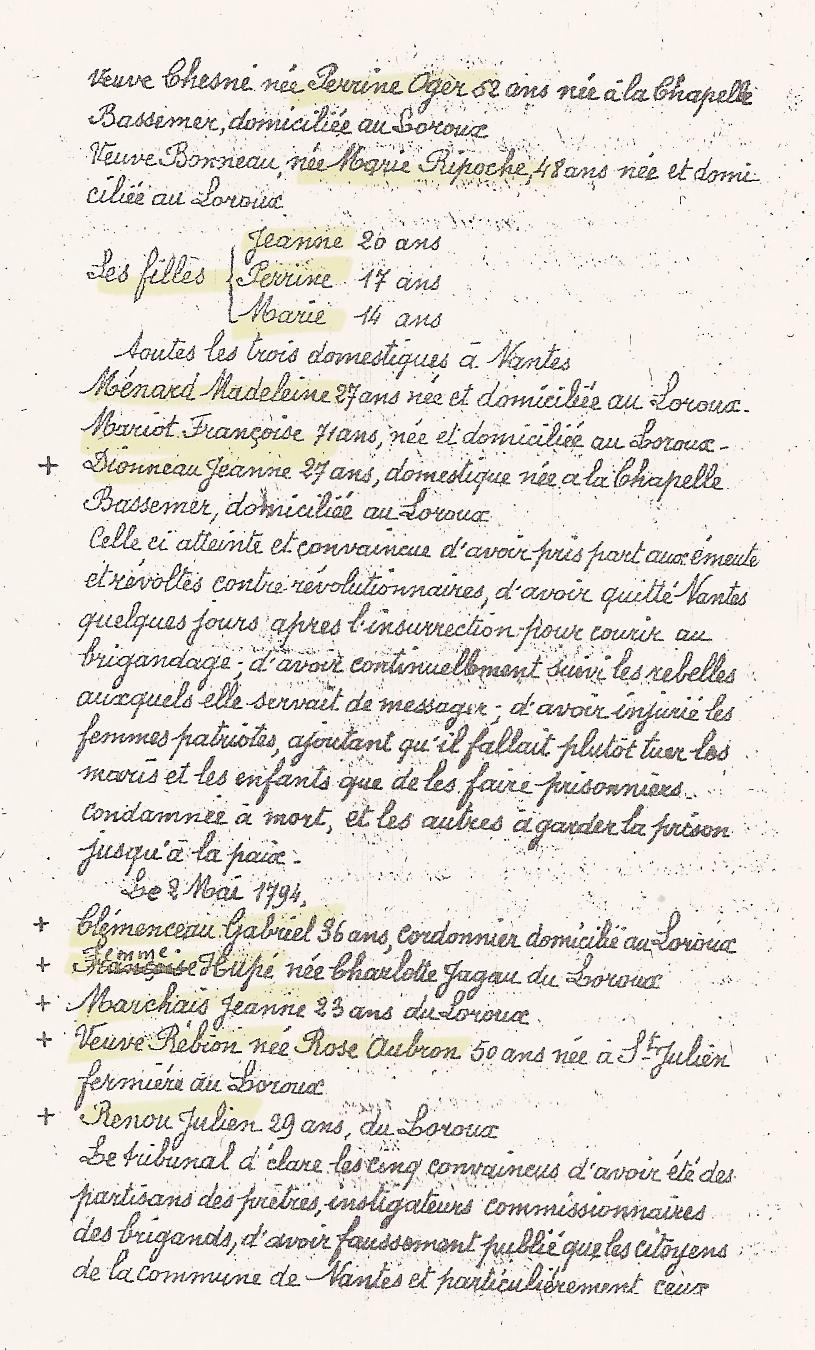 Veuve Chesné née Perrine Oger 52 ans née à la Chapelle
Bassemer, domiciliée au Loroux
Veuve Bonneau, née Marie Ripoche, 48 ans née et domi
ciliée au Loroux
Jeanne 20 ans
Les filles { Perrine 17 ans
Marie 14 ans
toutes les trois domestiques à Nantes
Ménard Madeleine 27 ans née et domiciliée au Loroux.
Mariot Françoise 71 ans, née et domiciliée au Loroux -
+ Dionneau Jeanne 27 ans, domestique née a la Chapelle
Bassemer, domiciliée au Loroux
Celle ci atteinte et convaincue d'avoir pris part aux émeute
et révoltes contre révolutionnaires, d'avoir quitté Nantes
quelques jours apres l'insurrection pour courir au
brigandage ; d'avoir continuellement suivi les rebelles
auxquels elle servait de messager ; d'avoir injurié les
femmes patriotes, ajoutant qu'il fallait plutôt tuer les
maris et les enfants que de les faire prisonniers.
Condamnée à mort, et les autres à garder la prison
jusqu'à la paix -
Le 2 Mai 1794,
+ Clémenceau Gabriel 36 ans, cordonnier domicilié au Loroux
+ Femme Hupé née Charlotte Jagau du Loroux
+ Marchais Jeanne 23 ans du Loroux
+ Veuve Rébion née Rose Aubron 50 ans née à St Julien
fermière au Loroux
+ Renou Julien 29 ans, du Loroux
Le tribunal d'clare les cinq convaincus d'avoir été des
partisans des prêtres, instigateurs commissionnaires
des brigands, d'avoir faussement publié que les citoyens
de la commune de Nantes et particulièrement ceux